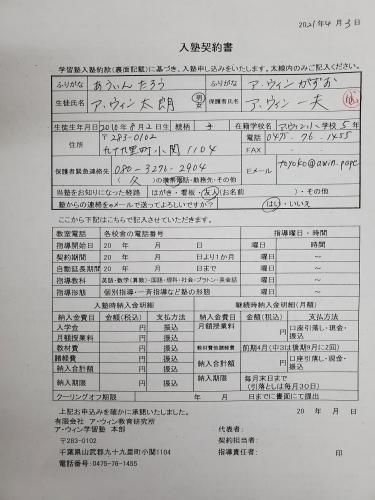 2021年4月3日
入塾契約書
学習塾入塾約款(裏面記載)に基づき、入塾申し込みをいたします。太線内のみご記入ください。
ふりがな あういん たろう ふりがな ア・ウィン かずお
生徒氏名 ア・ウィン 太朗 男女 保護者氏名 ア・ウィン 一夫
生徒生年月日 2010年8月2日生 続柄 子 在籍学校名 アウィン小学校 5年
住所 〒283-0102 電話 0475-76-1455
九十九里町小関1104 FAX -
保護者緊急連絡先 080-3296-2904 Eメール toyoko@awin.page
(父)の携帯電話・勤務先・その他
当塾をお知りになった経路 はがき・看板・友人(お名前 )・その他
塾からの連絡をeメールで送ってよろしいですか? はい・いいえ
ここから下記はこちらで記入させていただきます。
教室電話 各校舎の電話番号 指導曜日・時間
指導開始日 20 年 月 日 曜日 時間
契約期間 20 年 月 日より1か月 曜日 ~
自動延長期間 20 年 月 日まで 曜日 ~
指導教科 英語・数学(算数)・国語・理科・社会・プラトン・英会話 曜日 ~
指導形態 個別指導・一斉指導など塾の形態 曜日 ~
入塾時納入金明細 継続時納入金明細(月額)
納入金費目 金額(税込) 支払方法 納入金費目 金額(税込) 支払方法
入学金 円 振込 月額授業料 円 口座引落し・現金・振込
月額授業料 円 振込
教材費 円 振込 教材費他諸経費 前期4月(中3は後期9月に2回)
諸経費 円 振込 納入合計額 円 口座引落し・現金・振込
納入合計額 円 振込
納入期限 円 振込 納入期限 毎月末日まで
(引落としは毎月30日)
クーリングオフ期限 年 月 日までに書面にて提出
上記お申込みを確かに承諾いたしました。 20 年 月 日
有限会社 ア・ウィン教育研究所
ア・ウィン学習塾 本部 代表者:
〒283-0102 契約担当者:
千葉県山武郡九十九里町小関1104 指導責任者: 印
電話番号:0475-76-1455